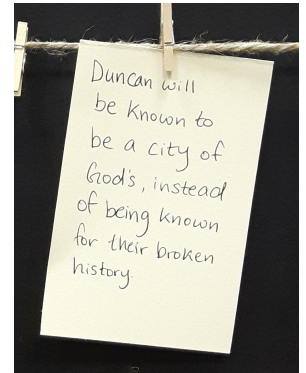 Duncan will
be known to
be a city of
God's, instead
of being known
for their broken
history.